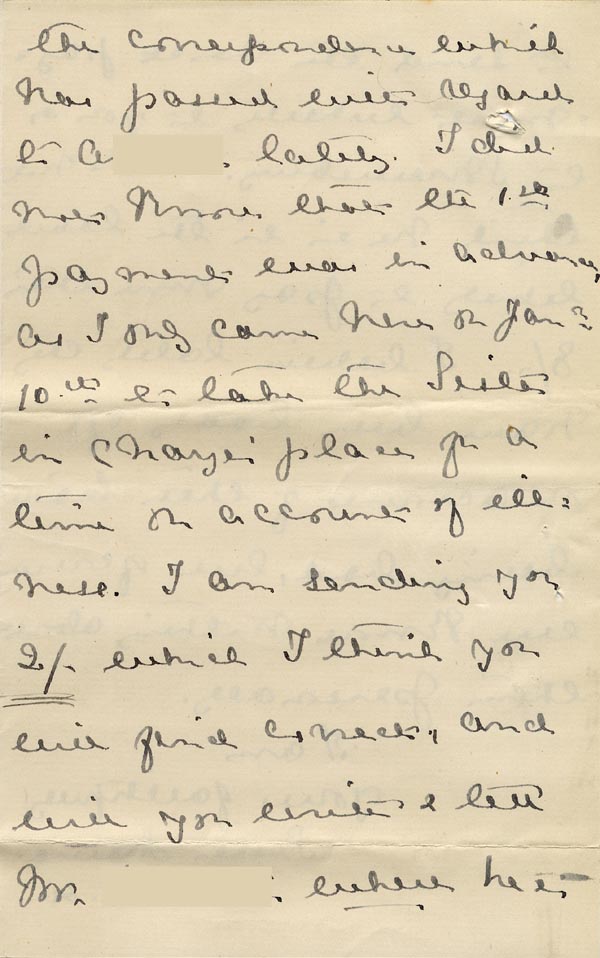 the correspondence which
has passed with regard
to A       . lately. I did
not know that the 1st
payment was in advance,
as I only came here on Jan:
10th to take the Sister
in Charge's place for a
time on account of ill:
ness. I am sending you
2/- which I think you
will find correct, and
will you write & tell
Mr.       . where he is